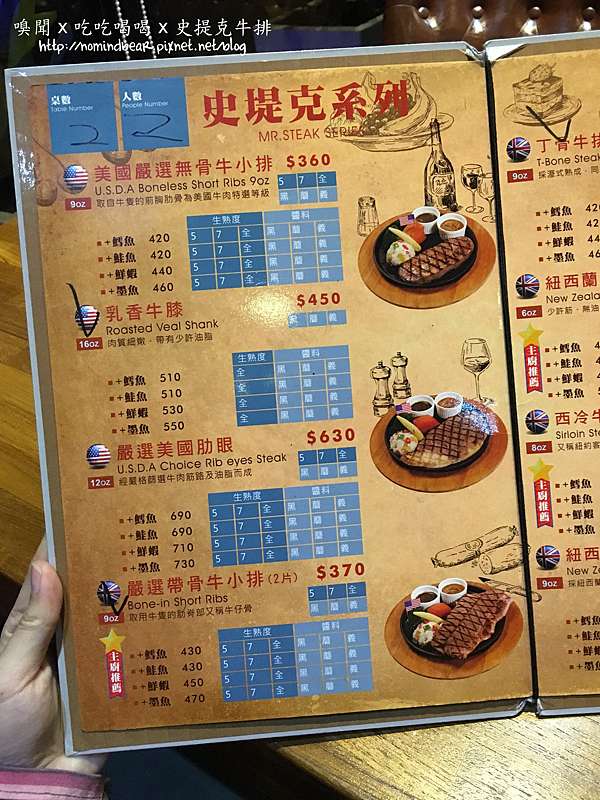 嗅聞 x 吃吃喝喝 x 史提克牛排
http://nomindbear.pixnet.net/blog
桌數
Table Number
2
人數
People Number
2
史堤克系列
MR.STEAK SERIES
美國嚴選無骨牛小排 $360
U.S.D.A Boneless Short Ribs 9oz
5 7 全
9oz
取自牛隻的前胸肋骨為美國牛肉特選等級
黑 蘑 義
生熟度 醬料
+鱈魚 420 5 7 全 黑 蘑 義
+鮭魚 420 5 7 全 黑 蘑 義
+鮮蝦 440 5 7 全 黑 蘑 義
+墨魚 460 5 7 全 黑 蘑 義
乳香牛膝 $450
Roasted Veal Shank
黑 蘑 義
16oz
肉質細嫩，帶有少許油脂
生熟度 醬料
+鱈魚 510 全 黑 蘑 義
+鮭魚 510 全 黑 蘑 義
+鮮蝦 530 全 黑 蘑 義
+墨魚 550 全 黑 蘑 義
嚴選美國肋眼 $630
U.S.D.A Choice Rib eyes Steak
5 7 全
12oz
經嚴格篩選牛肉筋路及油脂而成
黑 蘑 義
生熟度 醬料
+鱈魚 690 5 7 全 黑 蘑 義
+鮭魚 690 5 7 全 黑 蘑 義
+鮮蝦 710 5 7 全 黑 蘑 義
+墨魚 730 5 7 全 黑 蘑 義
嚴選帶骨牛小排(2片) $370
Bone-in Short Ribs
5 7 全
9oz
取用牛隻的肋脊部又稱牛仔骨
黑 蘑 義
主廚推薦
生熟度 醬料
+鱈魚 430 5 7 全 黑 蘑 義
+鮭魚 430 5 7 全 黑 蘑 義
+鮮蝦 450 5 7 全 黑 蘑 義
+墨魚 470 5 7 全 黑 蘑 義
丁骨牛排
T-Bone Steak
9oz
採濕式熟成，同
+鱈魚 420
+鮭魚 42
+鮮蝦 44
+墨魚 46
紐西蘭
New Zeala
6oz
少許筋，無油
主廚推薦
+鱈魚
+鮭魚
+鮮蝦
+墨魚
西冷牛
Sirloin Steak
8oz
又稱紐約客
主廚推薦
+鱈魚
+鮭魚
+鮮蝦
+墨魚
紐西
New Ze
9oz
採紐西
+鱈魚
+鮭魚
+鮮蝦
+墨魚